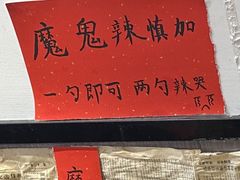 魔鬼辣慎加
一勺即可 两勺辣哭